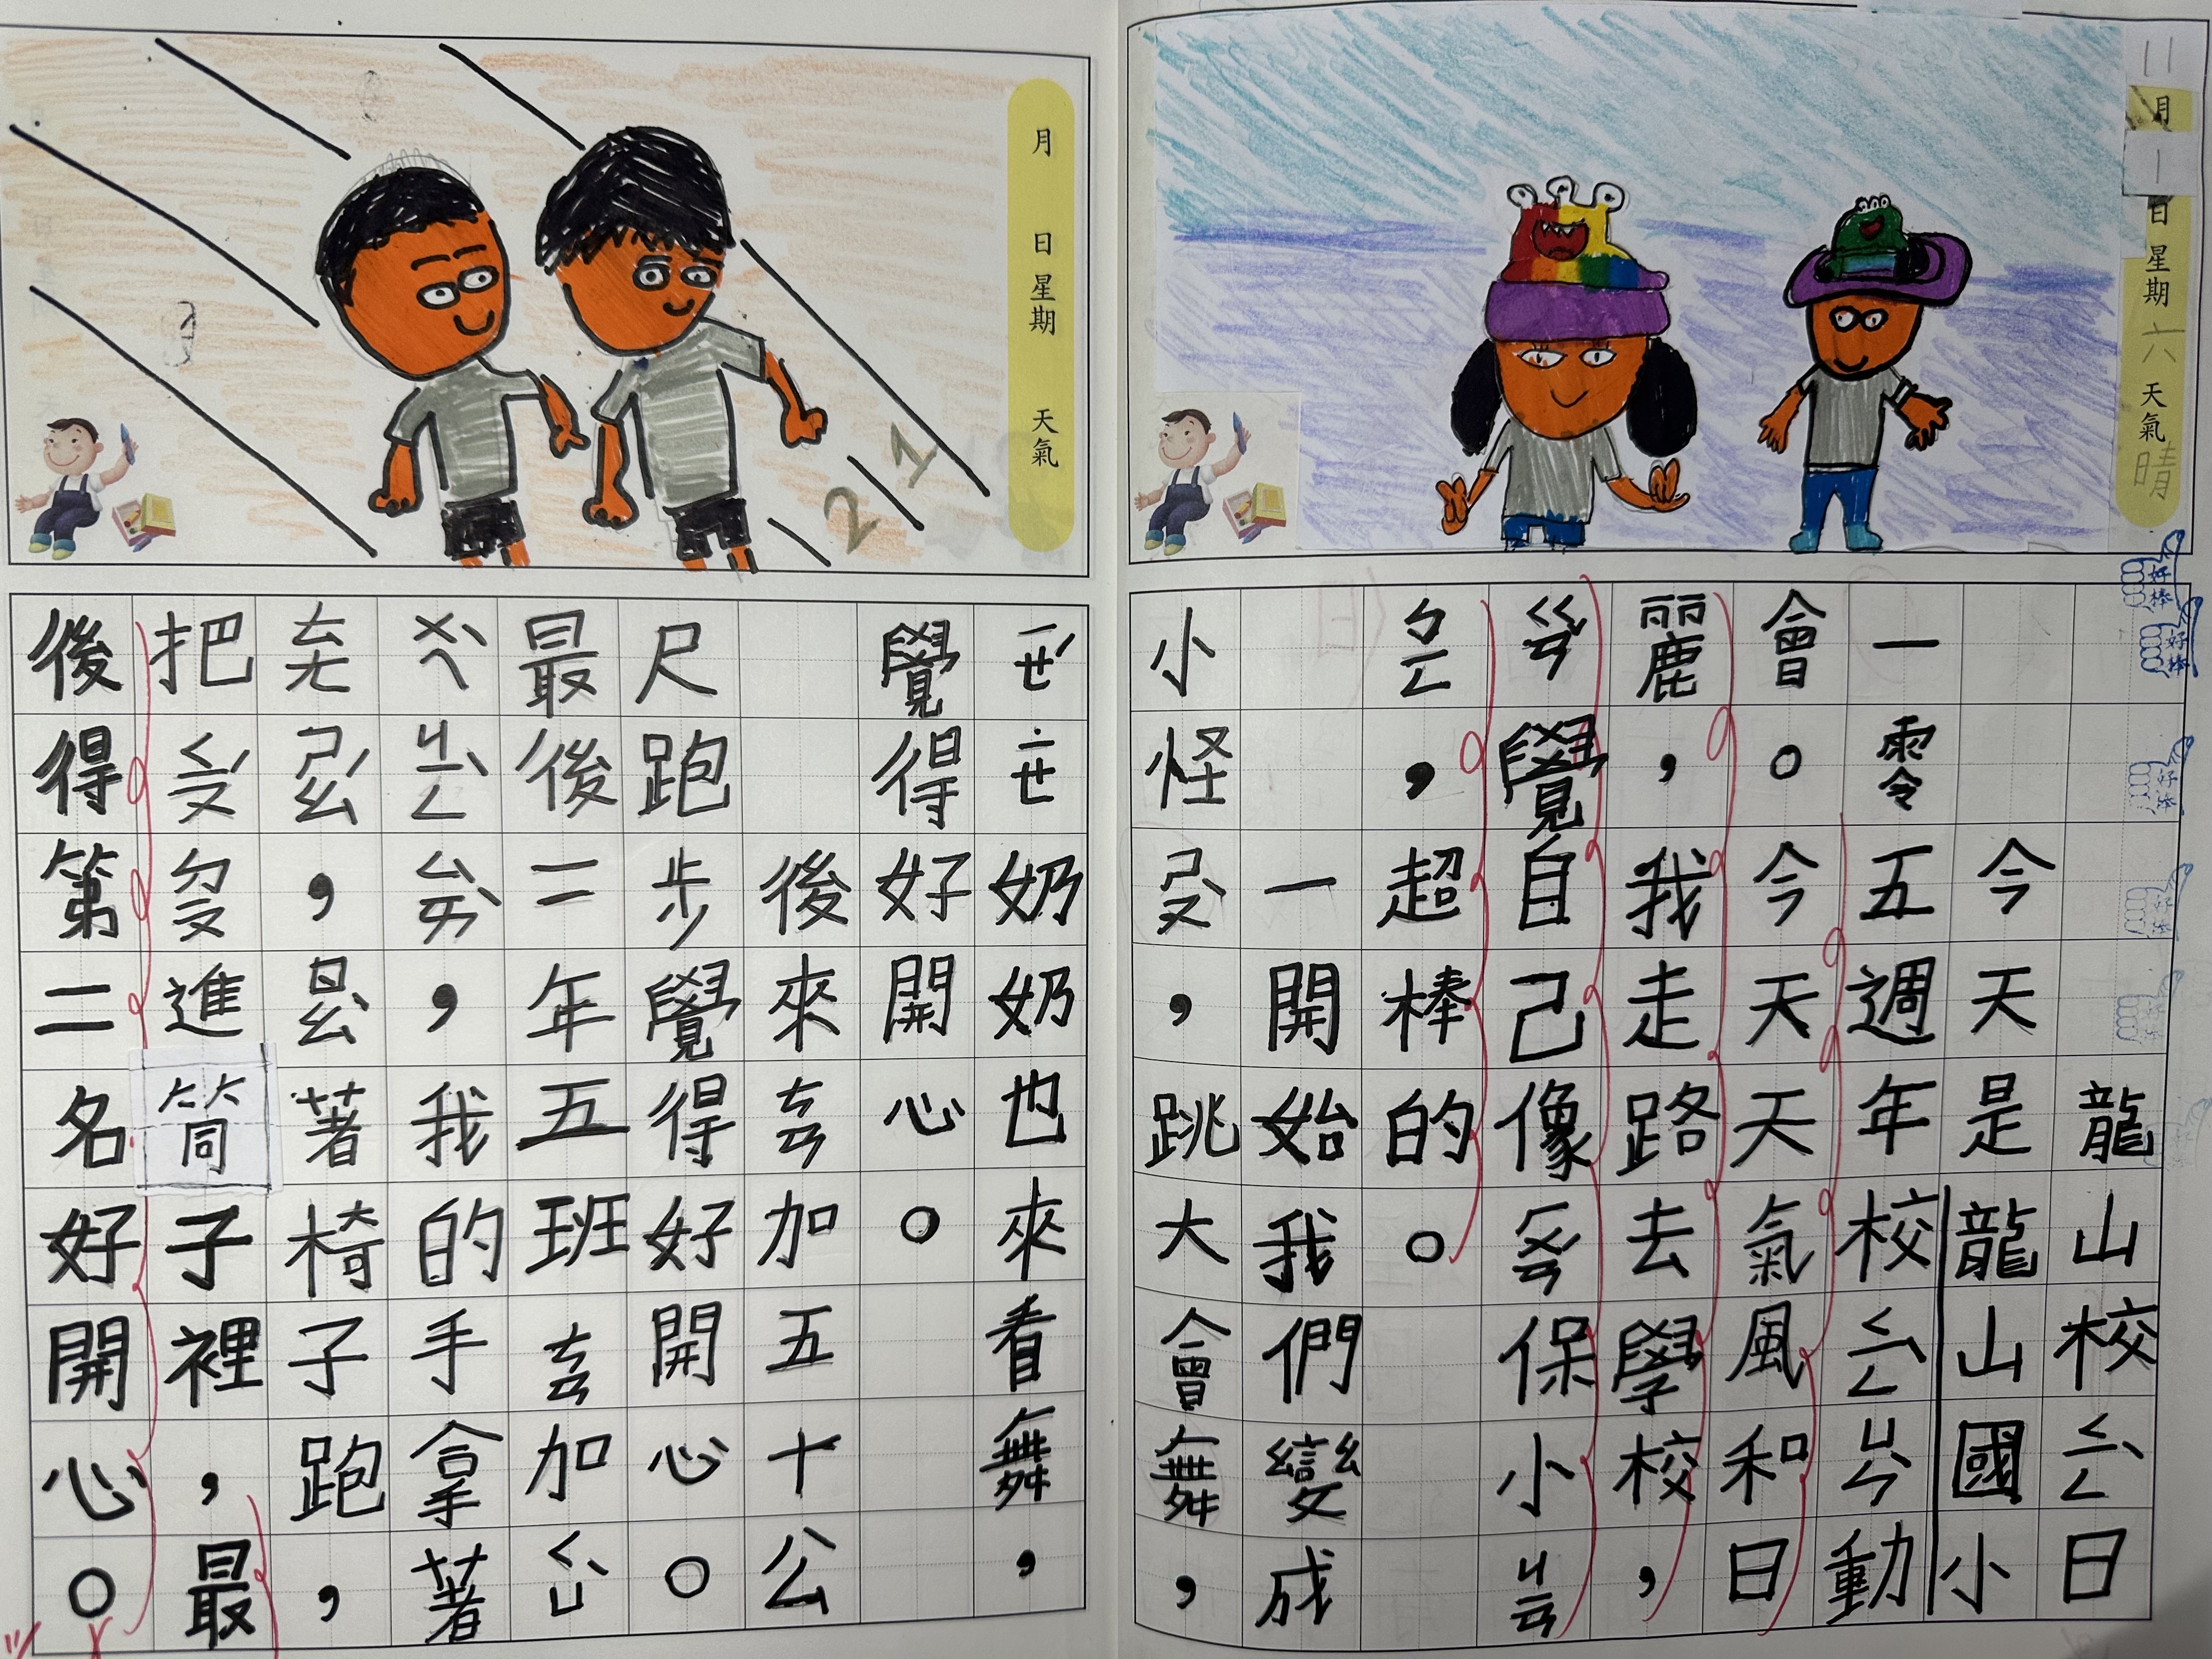 11月1日星期六天氣晴
龍山校ㄑㄧㄥˋ日
今天是龍山國小
一零五週年校ㄑㄧㄥˋㄩㄣˋ動
會。今天天氣風和日
麗,我走路去學校,
ㄍㄢˇ覺自己像ㄏㄨㄢˊ保小ㄐㄧㄢ
ㄅㄧㄥ,超棒的。
一開始我們變成
小怪ㄕㄡˋ,跳大會舞,
月日星期天氣
1
2
ㄧㄝˊ˙ㄧㄝ奶奶也來看舞,
覺得好開心。
後來ㄘㄢ加五十公
尺跑步覺得好開心。
最後二年五班ㄘㄢ加ㄑㄩˋ
ㄨㄟˋㄐㄧㄥˋㄙㄞˋ,我的手拿著
ㄊㄤㄕㄠˊ,ㄖㄠˋ著椅子跑,
把ㄑㄧㄡˊㄉㄧㄡ進筒子裡,最
後得第二名好開心。
好棒
好棒